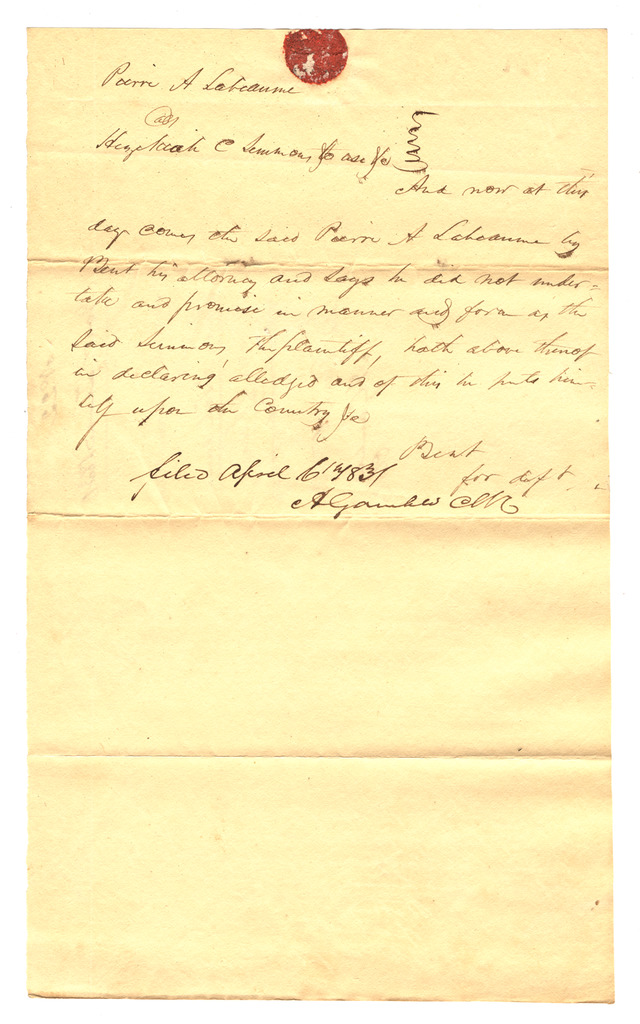 Pierre A Labeaume
ads
Hezekiah C Simmons to use &c
And now at this
day comes the said Pierre A Labeaume by
Bent his attorney and says he did not under=
take and promise in manner and form as the
said Simmons, the plaintiff, hath above thereof
in declaring alledged and of this he puts him-
self upon the Country &c
Bent
for deft
filed April 6th 1831
A Gamble Clk